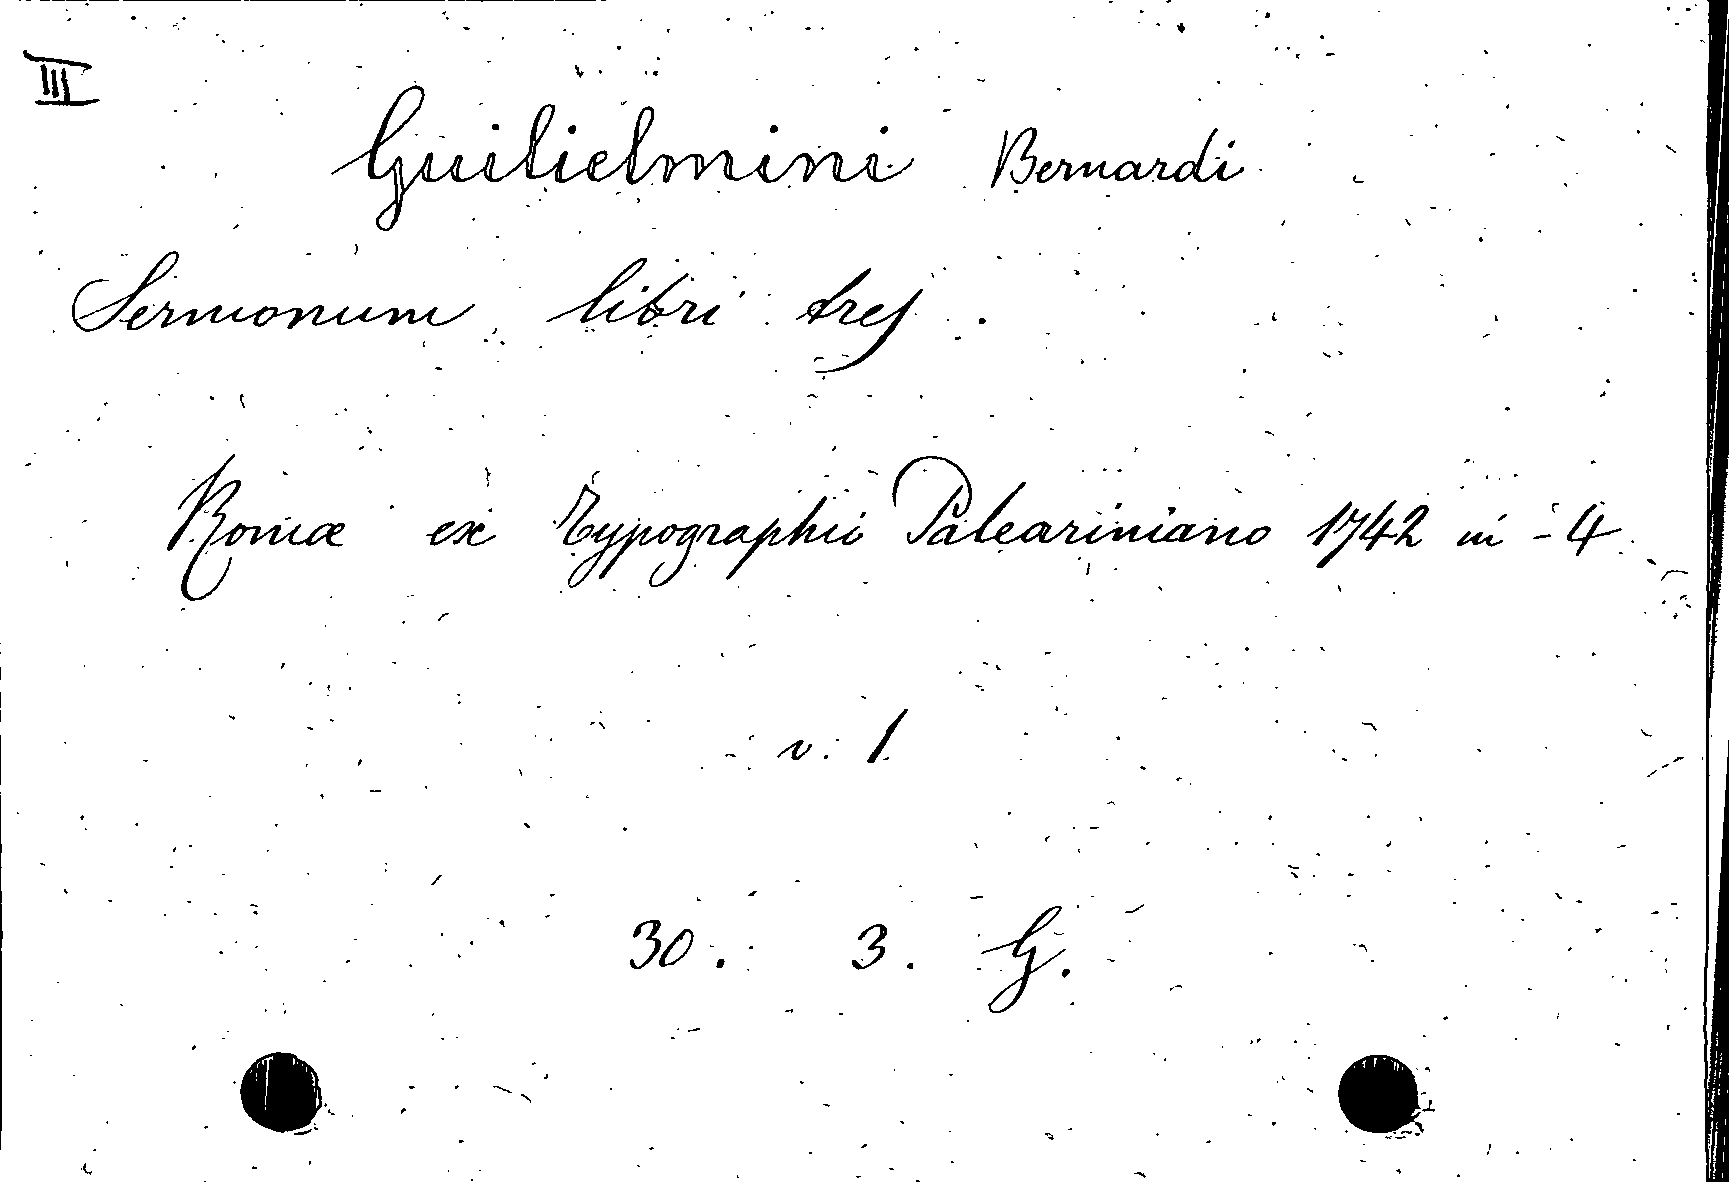 III
Guilielmini Bernardi
Sermonum libri tres.
Romæ ex Typographii Paleariniano 1742 in-4
v. 1
30. 3. G.